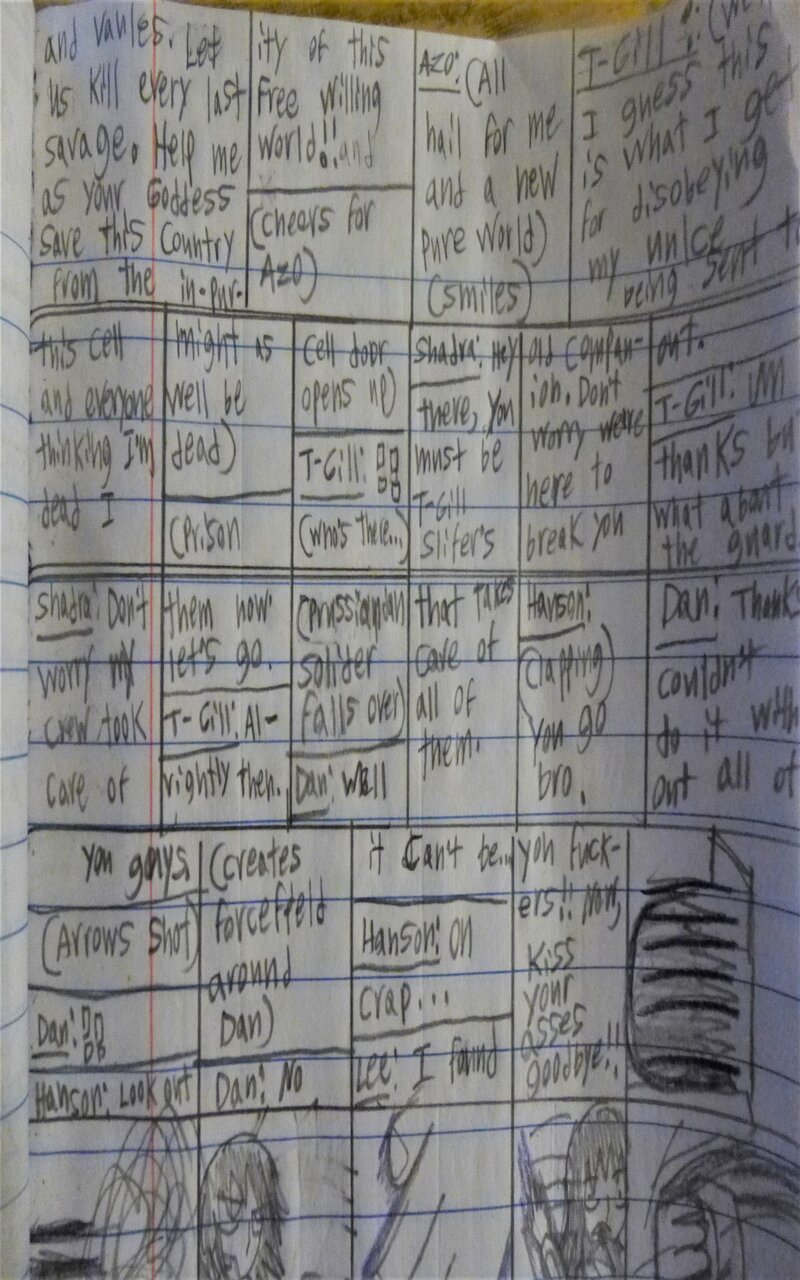 and vanles. Let
us kill every last
savage. Help me
as your Goddess
save this Country
from the in-pur-
ity of this
free willing
world!! and
(cheers for
AZO)
AZO: (All
hail for me
and a new
pure world)
(smiles)
T-Gill:
I guess this
is what I get
for disobeying
my unlce
being sent to
this cell
and everyone
thinking I'm
dead I
might as
well be
dead)
(Prison
cell door
opens up)
T-Gill:
(who's there...)
Shadra: Hey
there, you
must be
T-Gill
Slifer's
old compan-
ion. Don't
worry we're
here to
break you
out.
T-Gill: Um
thanks but
what about
the guard
Shadra: Don't
worry my
crew took
care of
them now
let's go.
T-Gill: Al-
rightly then.
(prussiandan
solider
falls over)
Dan: Well
that takes
care of
all of
them.
Hanson:
(clapping)
You go
bro.
Dan: Thanks
couldn't
do it with
out all of
you guys.
(Arrows shot)
Dan:
Hanson: Look out
(creates
forcefield
around
Dan)
Dan: No
it can't be...
Hanson: Oh
crap...
Lee: I found
you fuck-
ers!! Now,
kiss
your
asses
goodbye!!